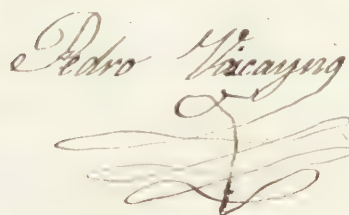 Pedro Vizcayno